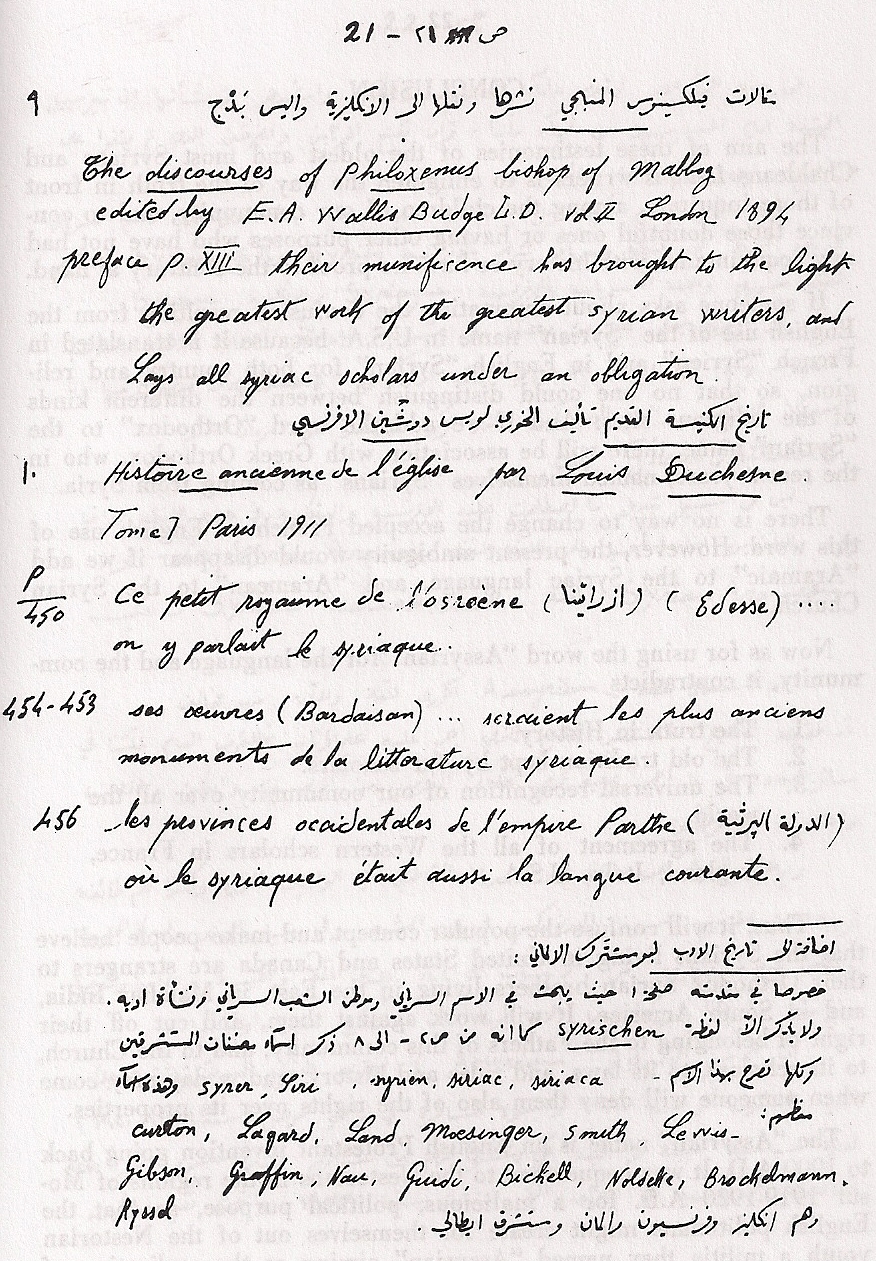 ص ٢١ - 21
٩ مقالات فيلكسينوس المنبجي نشرها ونقلها الى الانكليزية واليس بَدْج
The discourses of Philoxenus bishop of Mabbog
edited by E.A. Wallis Budge L.D. vol II London 1894
preface p. XIII their munificence has brought to the light
the greatest work of the greatest syrian writers, and
Lays all syriac scholars under an obligation
تاريخ الكنيسة القديم تأليف الخوري لويس دوشّين الافرنسي
1. Histoire ancienne de l'église par Louis Duchesne.
Tome I Paris 1911
P/450 Ce petit royaume de l'osroène (ازرائينا) (Edesse) ....
on y parlait le syriaque..
454-453 ses œuvres (Bardaisan) ... seraient les plus anciens
monuments de la litterature syriaque.
456 les provinces occidentales de l'empire Parthe (الدولة البرثية)
où le syriaque était aussi la langue courante.
اضافة الى تاريخ الادب لبومشترك الالماني :
خصوصا في مقدمته صفحة ١ حيث يبحث في الاسم السرياني وموطن الشعب السرياني ونشأة ادبه.
ولا يذكر الّا لفظة syrischen كما انه من ص ٢ - الى ٨ ذكر اسماء مصنفات المستشرقين
وكلها تصرح بهذا الاسم - syrer, Siri, syrien, siriac, siriaca وهذه اسماء
بعضهم: curton, Lagard, Land Moesinger, Smith, Lewis-
Gibson, Graffin, Nau, Guidi, Bickell, Nolseke, Brockelmann.
Ryssel وهم انكليز وفرنسيون والمان ومستشرق ايطالي.